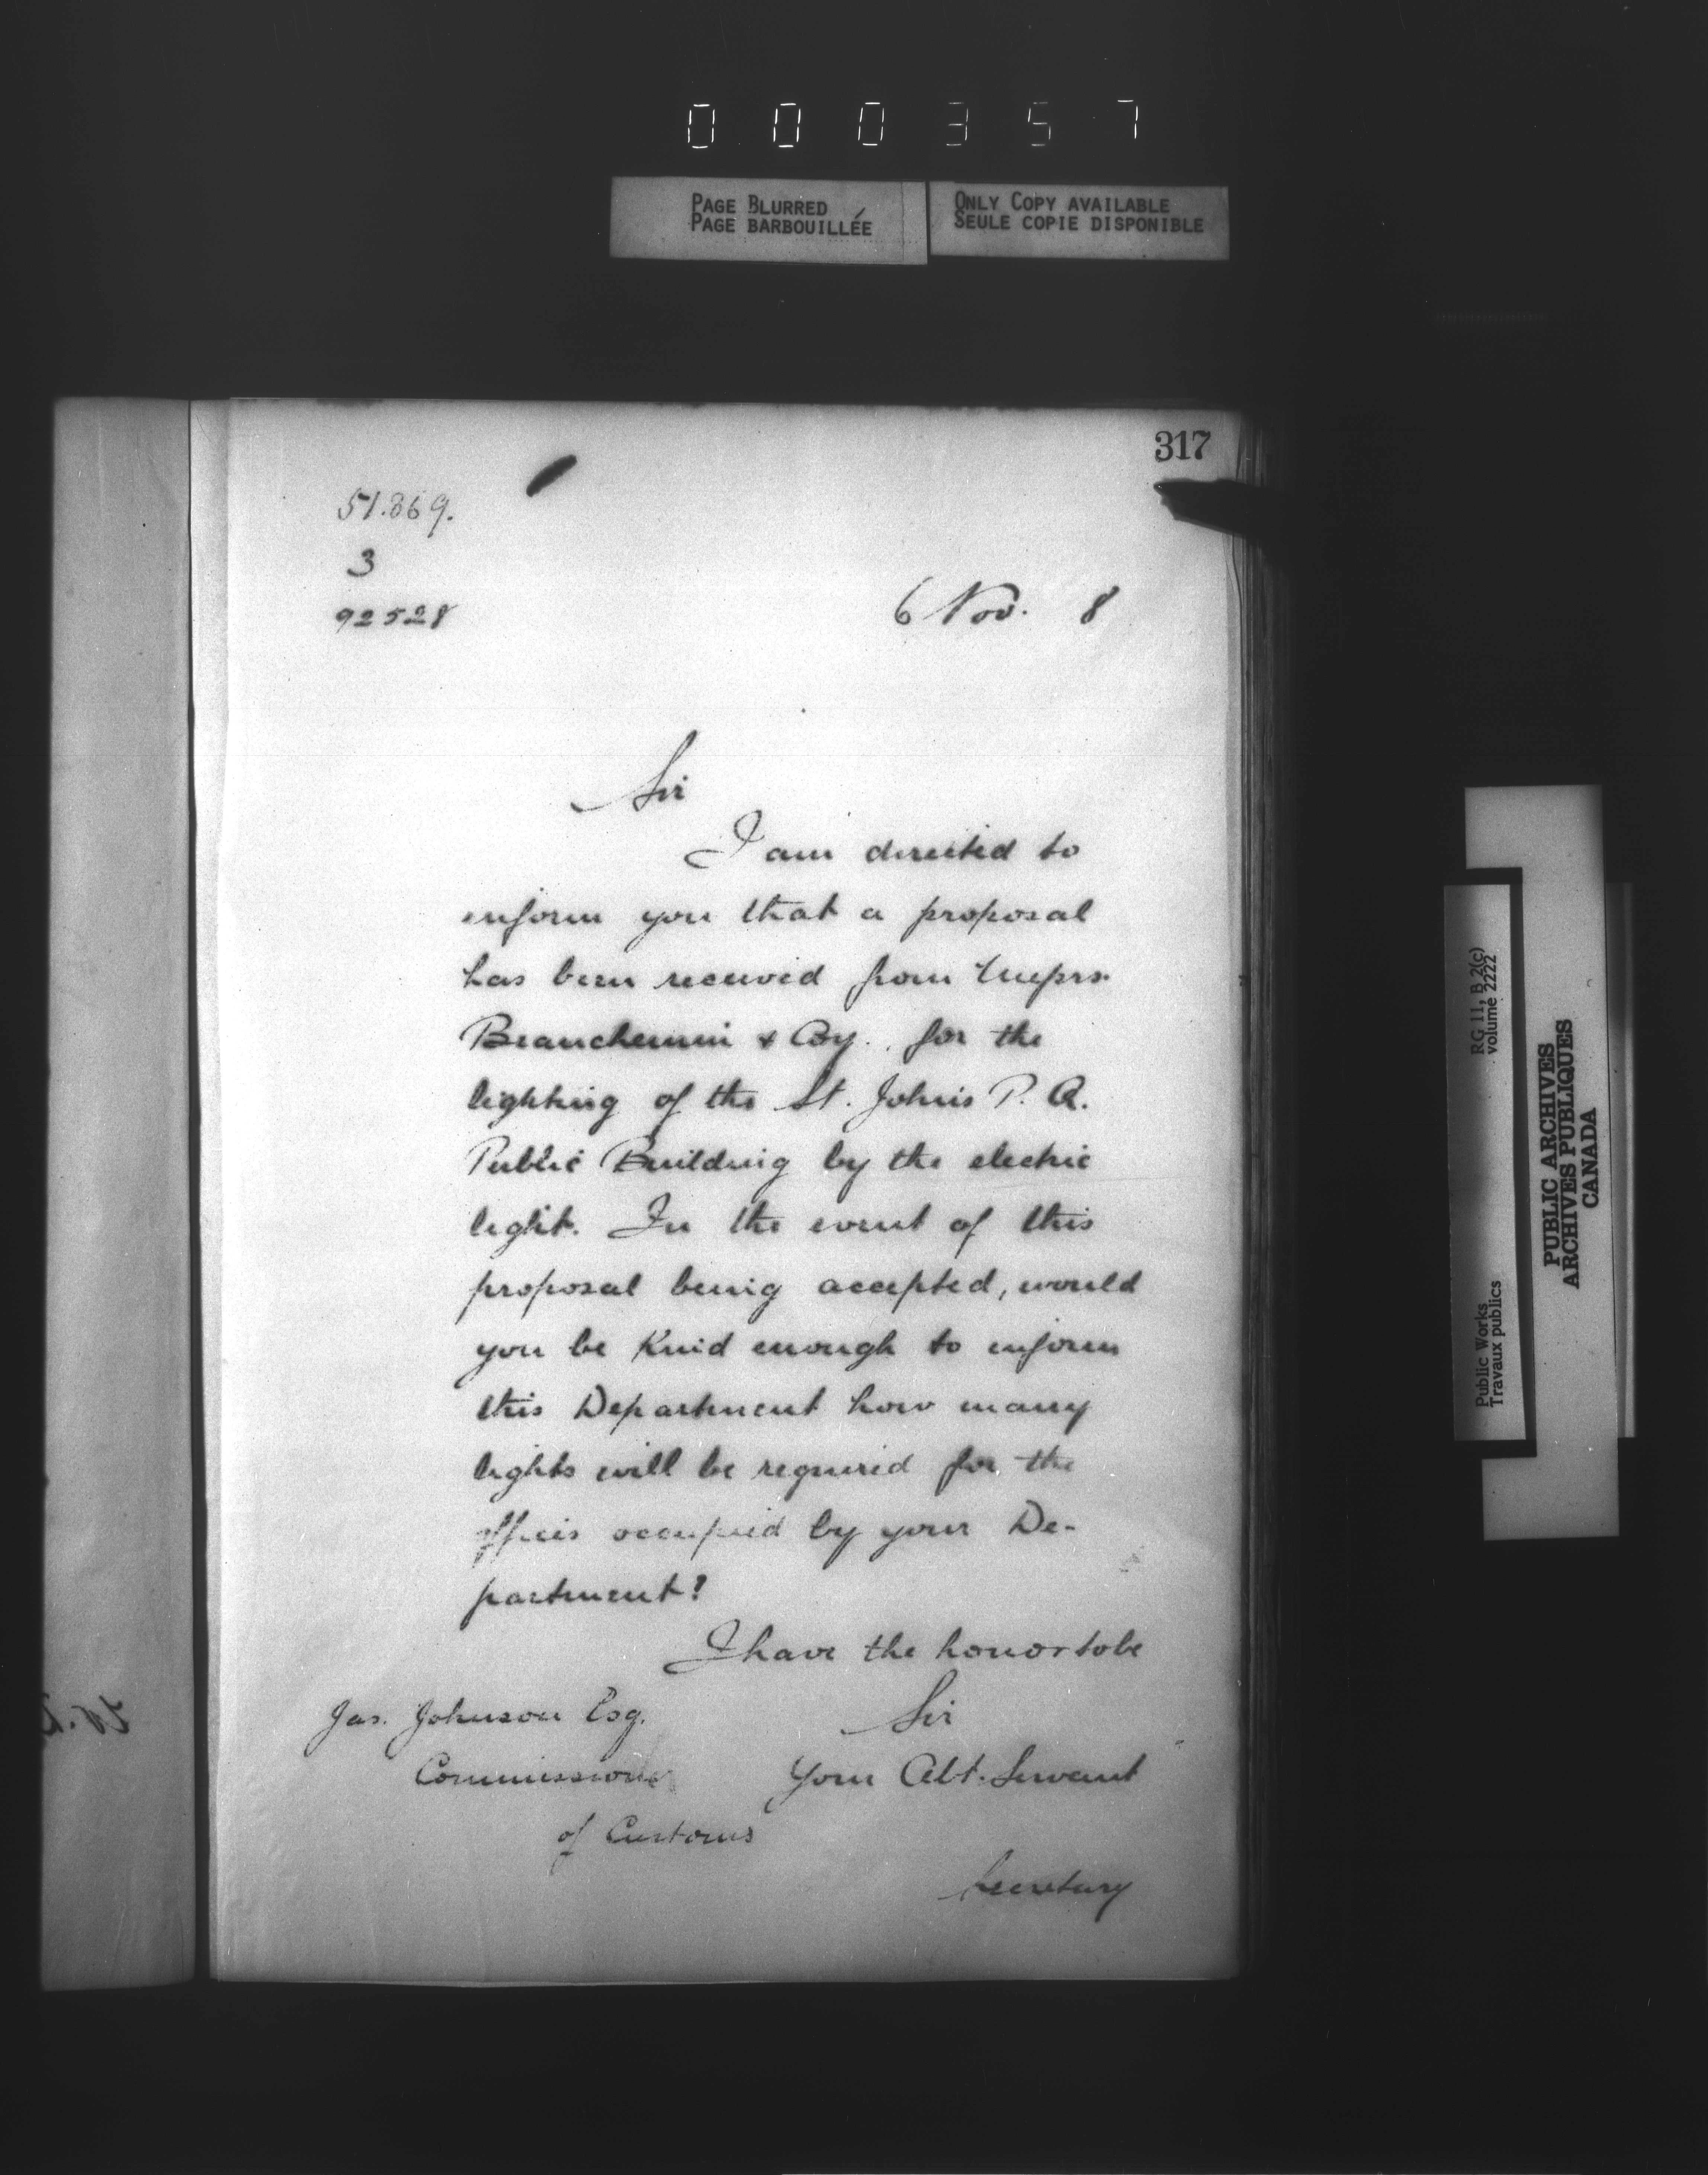 000357
PAGE BLURRED
PAGE BARBOUILLÉE
ONLY COPY AVAILABLE
SEULE COPIE DISPONIBLE
317
51.869.
3
92528
6 Nov. 8
Sir
I am directed to
inform you that a proposal
has been received from Messrs.
Beauchemin & Coy. for the
lighting of the St. Johns P. Q.
Public Building by the electric
light. In the event of this
proposal being accepted, would
you be kind enough to inform
this Department how many
lights will be required for the
offices occupied by your De-
partment?
I have the honor to be
Sir
Your Obt. Servant
Secretary
Jas. Johnson Esq.
Commissioner
of Customs
RG 11, B 2(c)
volume 2222
Public Works
Travaux publics
PUBLIC ARCHIVES
ARCHIVES PUBLIQUES
CANADA